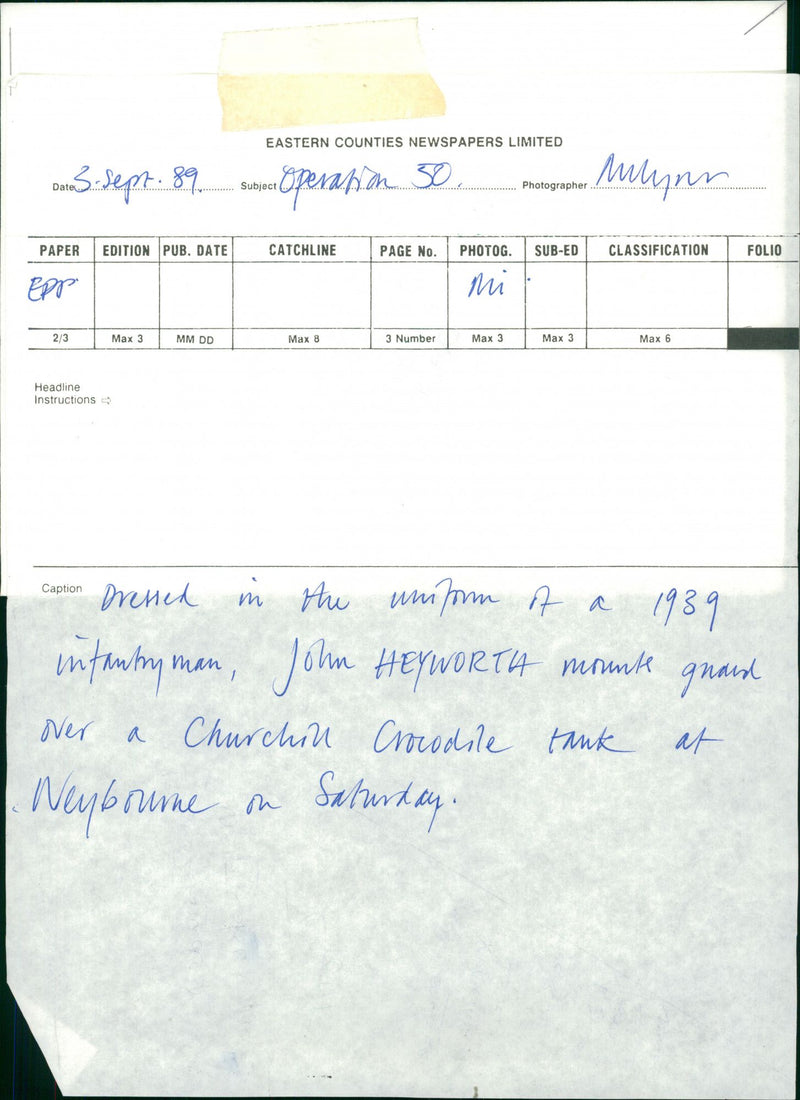 EASTERN COUNTIES NEWSPAPERS LIMITED
Date 3. Sept. 89. Subject Operation 50. Photographer
PAPER EDITION PUB. DATE CATCHLINE PAGE No. PHOTOG. SUB-ED CLASSIFICATION FOLIO
EDP
2/3 Max 3 MM DD Max 8 3 Number Max 3 Max 3 Max 6
Headline
Instructions ⇨
Caption Dressed in the uniform of a 1939
infantryman, John HEYWORTH mounts guard
over a Churchill Crocodile tank at
Weybourne on Saturday.